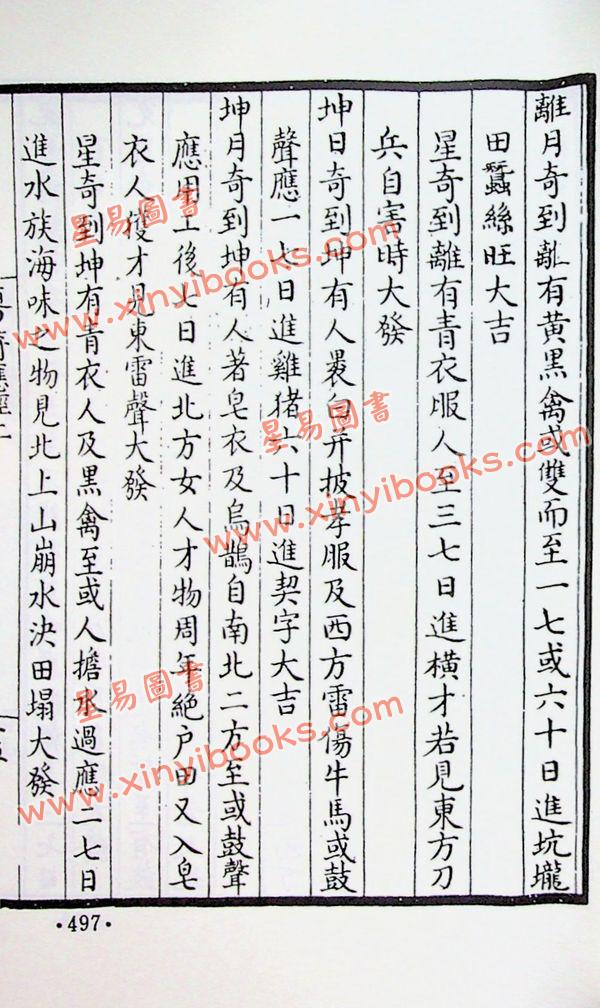 離月奇到離有黃黑禽或雙而至一七或六十日進坑壠
田蠶絲旺大吉
星奇到離有青衣服人至三七日進橫才若見東方刀
兵自害時大發
坤日奇到坤有人裹白并披孝服及西方雷傷牛馬或鼓
聲應一七日進雞猪六十日進契字大吉
坤月奇到坤有人著皂衣及烏鵲自南北二方至或鼓聲
應用工後七日進北方女人才物周年絕户田又入皂
衣人獲才見東雷聲大發
星奇到坤有青衣人及黑禽至或人擔水過應二七日
進水族海味之物見北上山崩水決田塌大發
·497·
星易圖書
www.xinyibooks.com
星易圖書
www.xinyibooks.com
星易圖書
www.xinyibooks.com